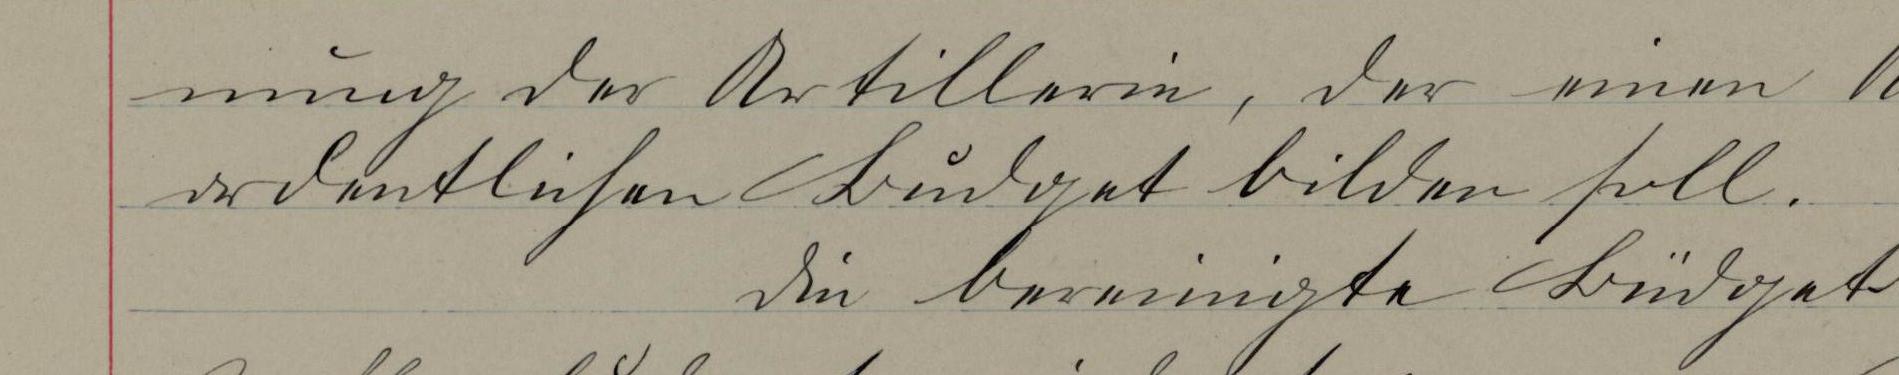 nung der Artillerie, der einen
ordentlichen Budget bilden soll.
die bereinigte Büdget